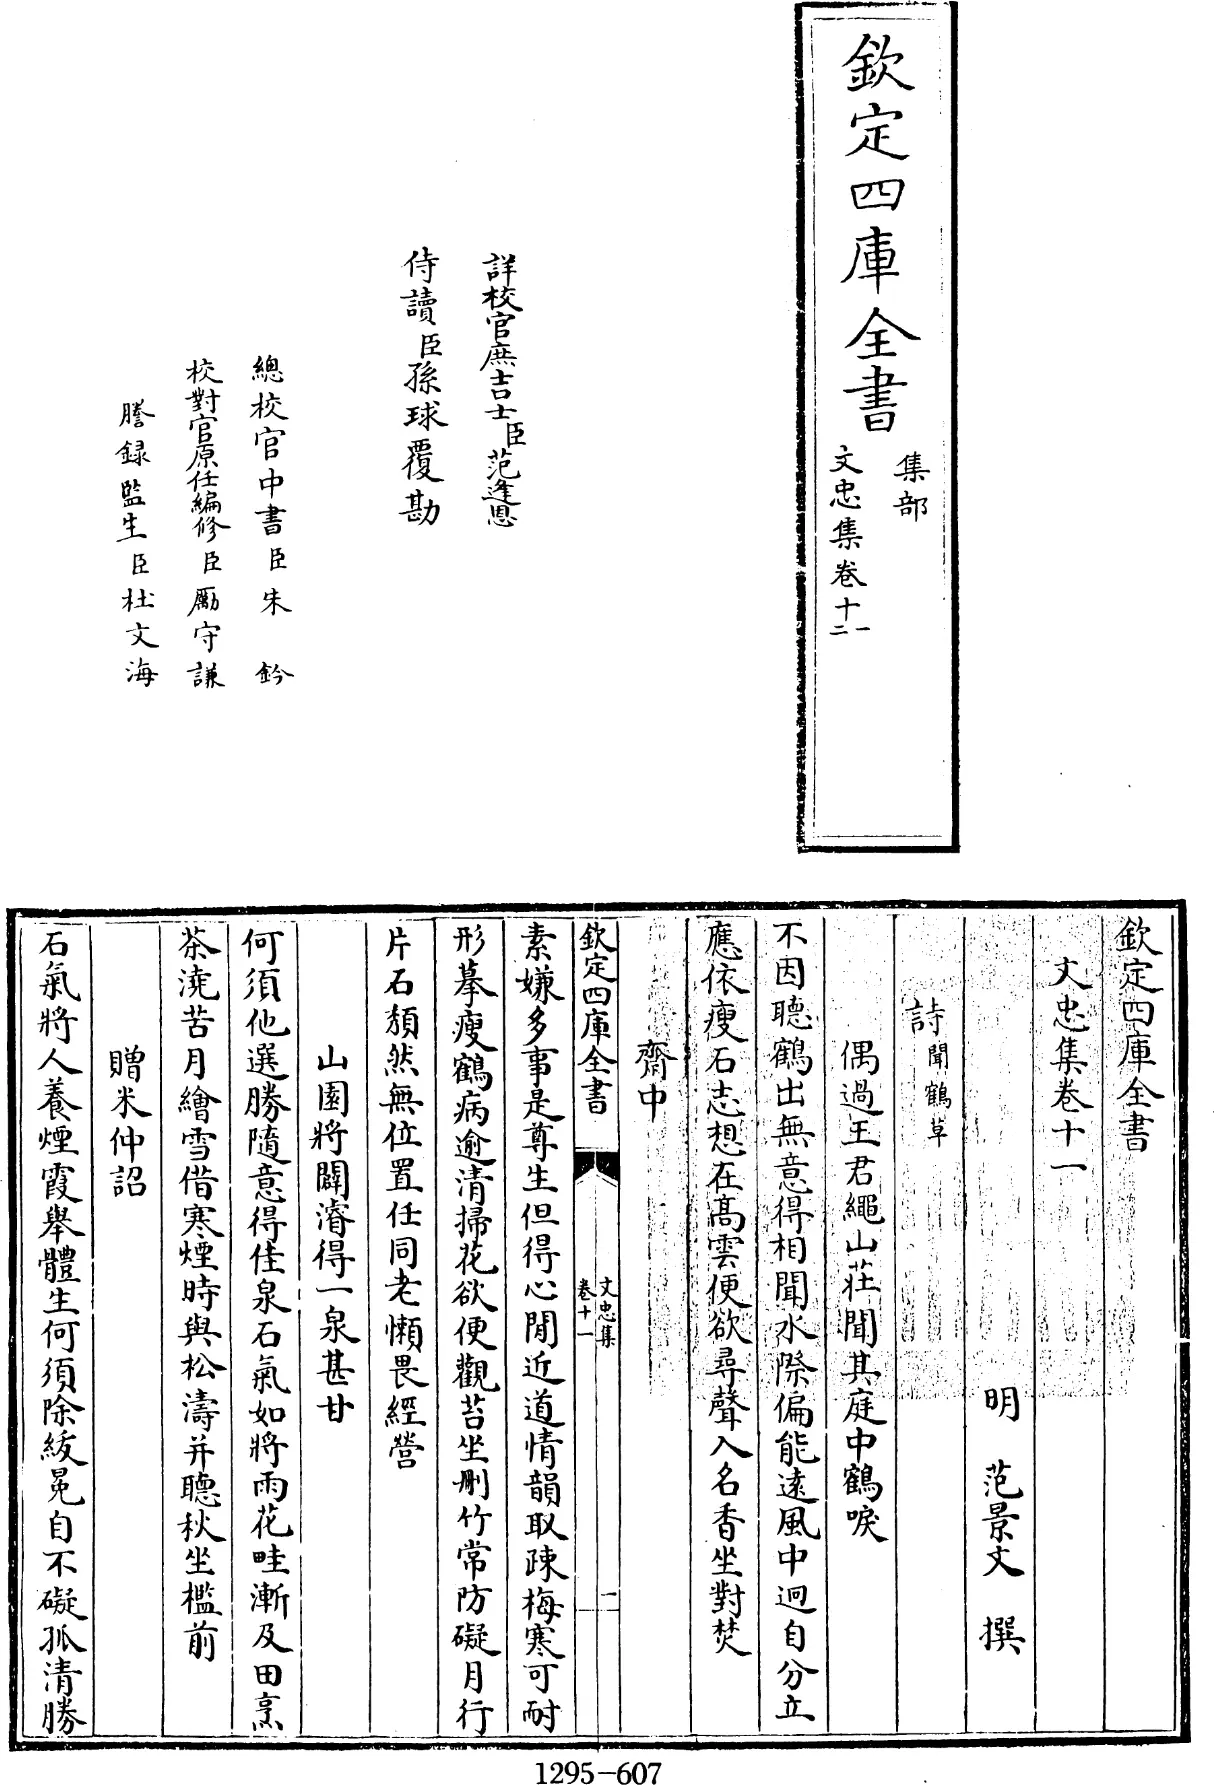 欽定四庫全書
集部
文忠集卷十一
二
詳校官庶吉士臣范逢恩
侍讀臣孫球覆勘
總校官中書臣朱鈐
校對官原任編修臣勵守謙
謄録監生臣杜文海
欽定四庫全書
文忠集卷十一
明 范景文 撰
詩聞鶴草
偶過王君繩山莊聞其庭中鶴唳
不因聽鶴出無意得相聞水際偏能遠風中迥自分立
應依瘦石志想在髙雲便欲尋聲入名香坐對焚
齋中
欽定四庫全書
文忠集
卷十一
一
素嫌多事是尊生但得心閒近道情韻取疎梅寒可耐
形摹瘦鶴病逾清掃花欲便觀苔坐刪竹常防礙月行
片石頽然無位置任同老懶畏經營
山園將闢濬得一泉甚甘
何須他選勝隨意得佳泉石氣如將雨花畦漸及田烹
茶澆苦月繪雪借寒煙時與松濤并聽秋坐檻前
贈米仲詔
石氣將人養煙霞舉體生何須除紱冕自不礙孤清勝
1295-607